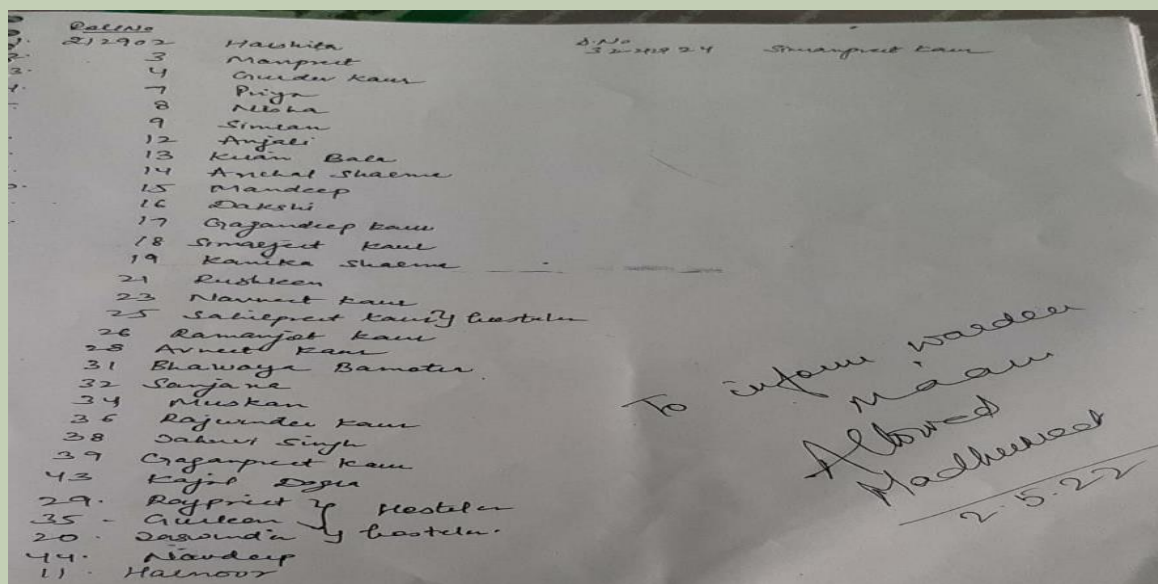 Roll No
212902 Harshita
3 Manpreet
4 Gurdev Kaur
7 Priya
8 Nisha
9 Simran
12 Anjali
13 Kiran Bala
14 Anchal Sharma
15 Mandeep
16 Dakshi
17 Gagandeep Kaur
18 Simarjeet Kaur
19 Kanika Sharma
21 Rushleen
23 Navneet Kaur
25 Kaur } hosteler
26 Ramanjot Kaur
28 Avneet Kaur
31 Bhawaya
32 Sanjana
34 Muskan
36 Rajwinder Kaur
38 Singh
39 Gaganpreet Kaur
43 Kajol Dogra
29. Rajpreet } Hosteler
35 - Gurleen
20. Jaswinder } hosteler.
44. Navdeep
11. Harnoor
S.No
24 Simranpreet Kaur
To inform warden
Ma'am
Allowed
Madhumeet
2.5.22